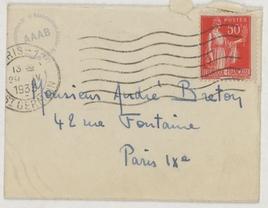 AAAB
PARIS
13
193
ST GERMAIN
POSTES
50c
Monsieur André Breton
42 rue Fontaine
Paris IXe